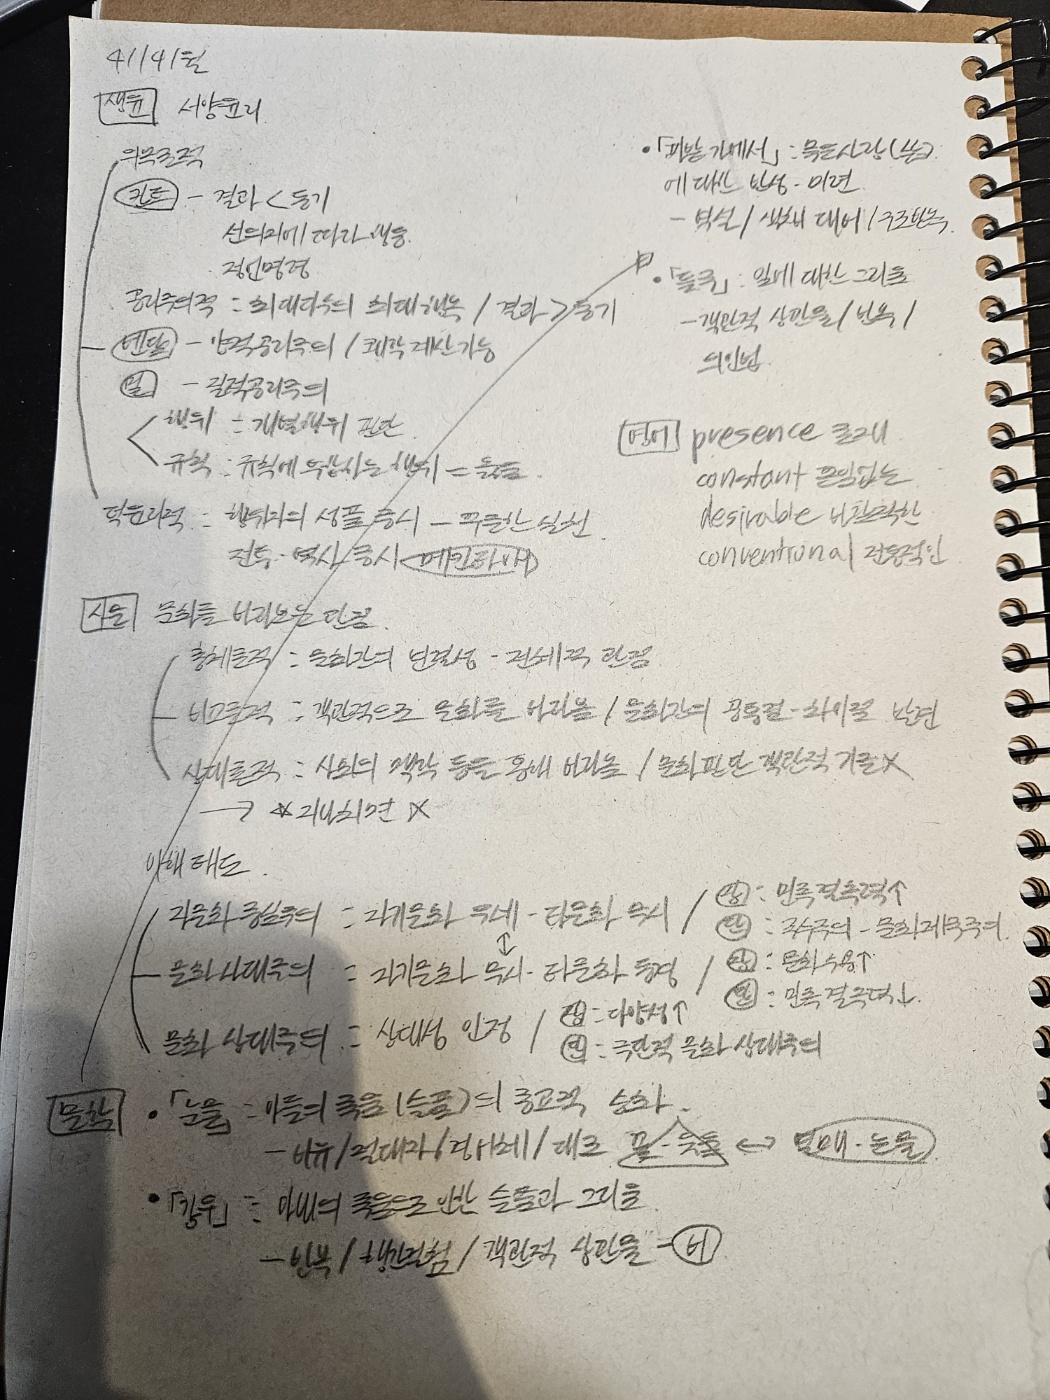 4/14/월
생윤 서양윤리
의무론적
칸트 - 결과 < 동기
선의지에 따라 행동
정언명령
공리주의적 : 최대다수의 최대행복 / 결과 > 동기
벤담 - 양적공리주의 / 쾌락 계산가능
밀 - 질적공리주의
행위 : 개별행위 판단
규칙 : 규칙에 부합하는 행위 = 옳음
덕윤리적 : 행위자의 성품 중시 - 꾸준한 실천
전통·역사 중시 매킨타이어
사문 문화를 바라보는 관점
총체론적 : 문화간의 연결성 - 전체적 관점
비교론적 : 객관적으로 문화를 바라봄 / 문화간의 공통점-차이점 발견
상대론적 : 사회의 맥락 등을 통해 바라봄 / 문화판단 객관적 기준X
→ ☆지나치면 X
이해 태도
자문화 중심주의 : 자기문화 우세 - 타문화 무시 / 장 : 민족결속력↑
단 : 국수주의 - 문화제국주의
↕
문화 상대주의 : 자기문화 무시 - 타문화 동경 / 장 : 문화수용↑
단 : 민족결속력↓
문화 상대주의 : 상대성 인정 / 장 : 다양성↑
단 : 극단적 문화 상대주의
문학 • 「눈물」 : 아들의 죽음(슬픔)의 종교적 승화
- 비유 / 절대자 / 경어체 / 대조 꽃-웃음 ↔ 열매-눈물
• 「강우」 : 아내의 죽음으로 인한 슬픔과 그리움
- 반복 / 행간걸침 / 객관적 상관물 - 비
• 「피발 가에서」 : 목든사랑(능)
에 대한 반성 - 미련
- 역설 / 색채 대비 / 구조반복
• 「들국」 : 임에 대한 그리움
- 객관적 상관물 / 반복 /
의인법
영어 presence 존재
constant 끊임없는
desirable 바람직한
conventional 전통적인